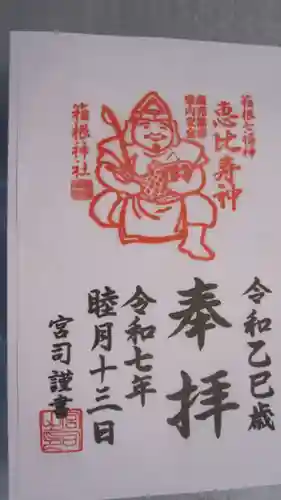 箱根七福神
恵比寿神
商売繁昌
家内安全
箱根神社
令和乙巳歳
奉拝
令和七年
睦月十三日
宮司謹書